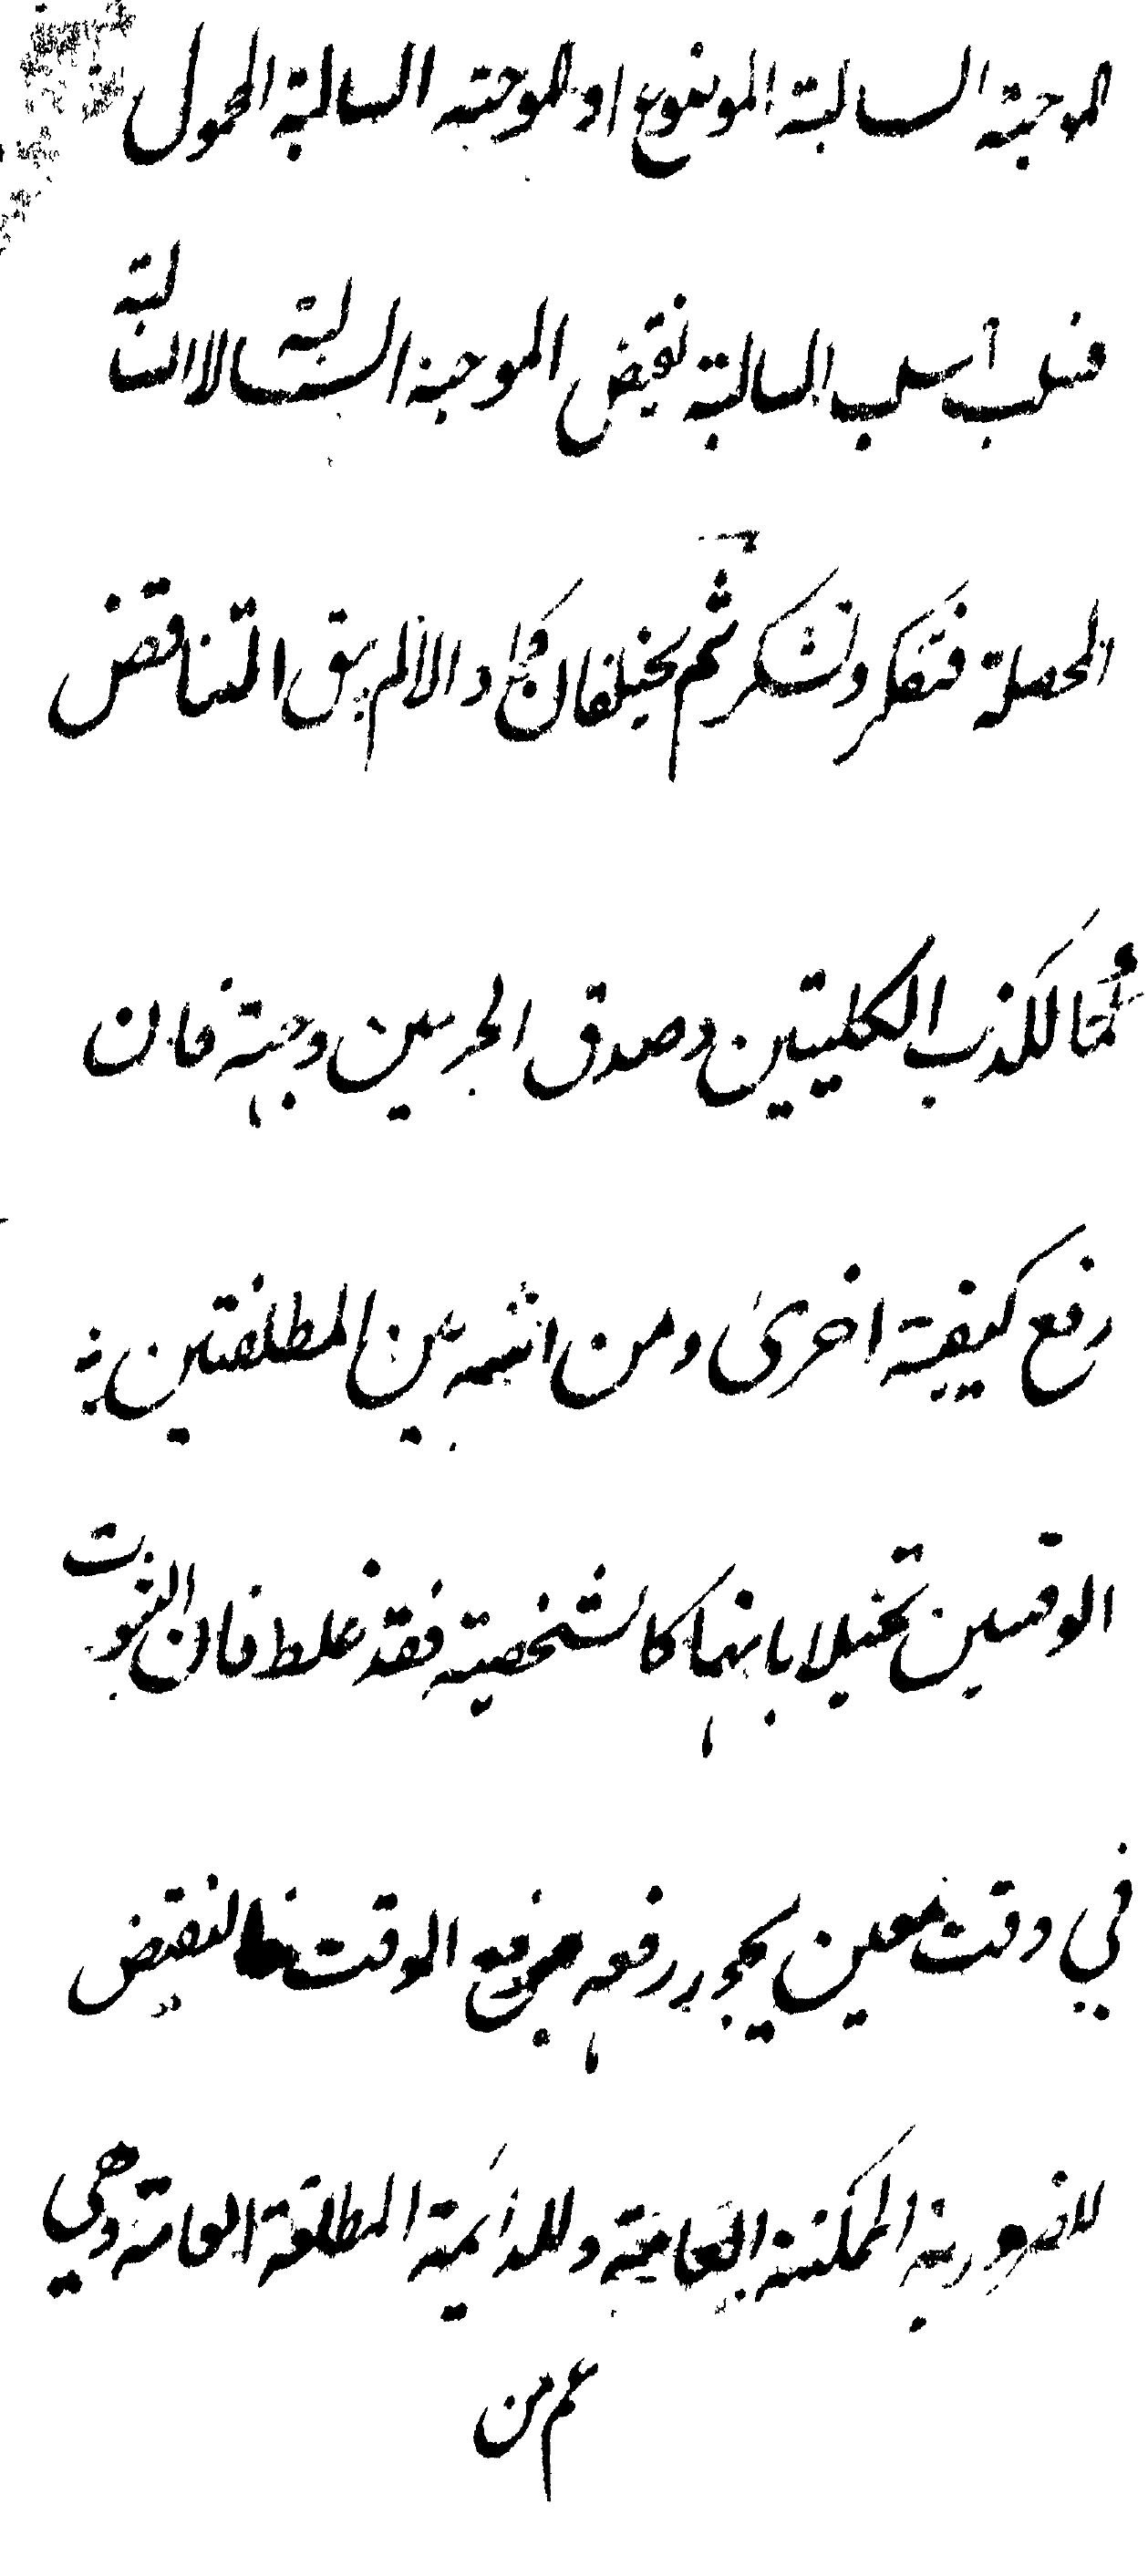 الموجبة السالبة الموضوع او الموجبة السالبة المحمول
فسلب السلب السالبة نقيض الموجبة السالبة لا السالبة
المحصلة فتفكر وتشكر ثم يختلفان كما والا لم يبق التناقض
لكذب الكليتين وصدق الجزئيين وجهة فان
رفع كيفية اخرى ومن اثبته بين المطلقتين
الوقتيتين تخيلا بانهما كالشخصية فقد غلط فان الثبوت
في وقت معين يجوز رفعه برفع الوقت فالنقيض
للضرورية الممكنة العامة وللدائمة المطلقة العامة وهي
اعم من